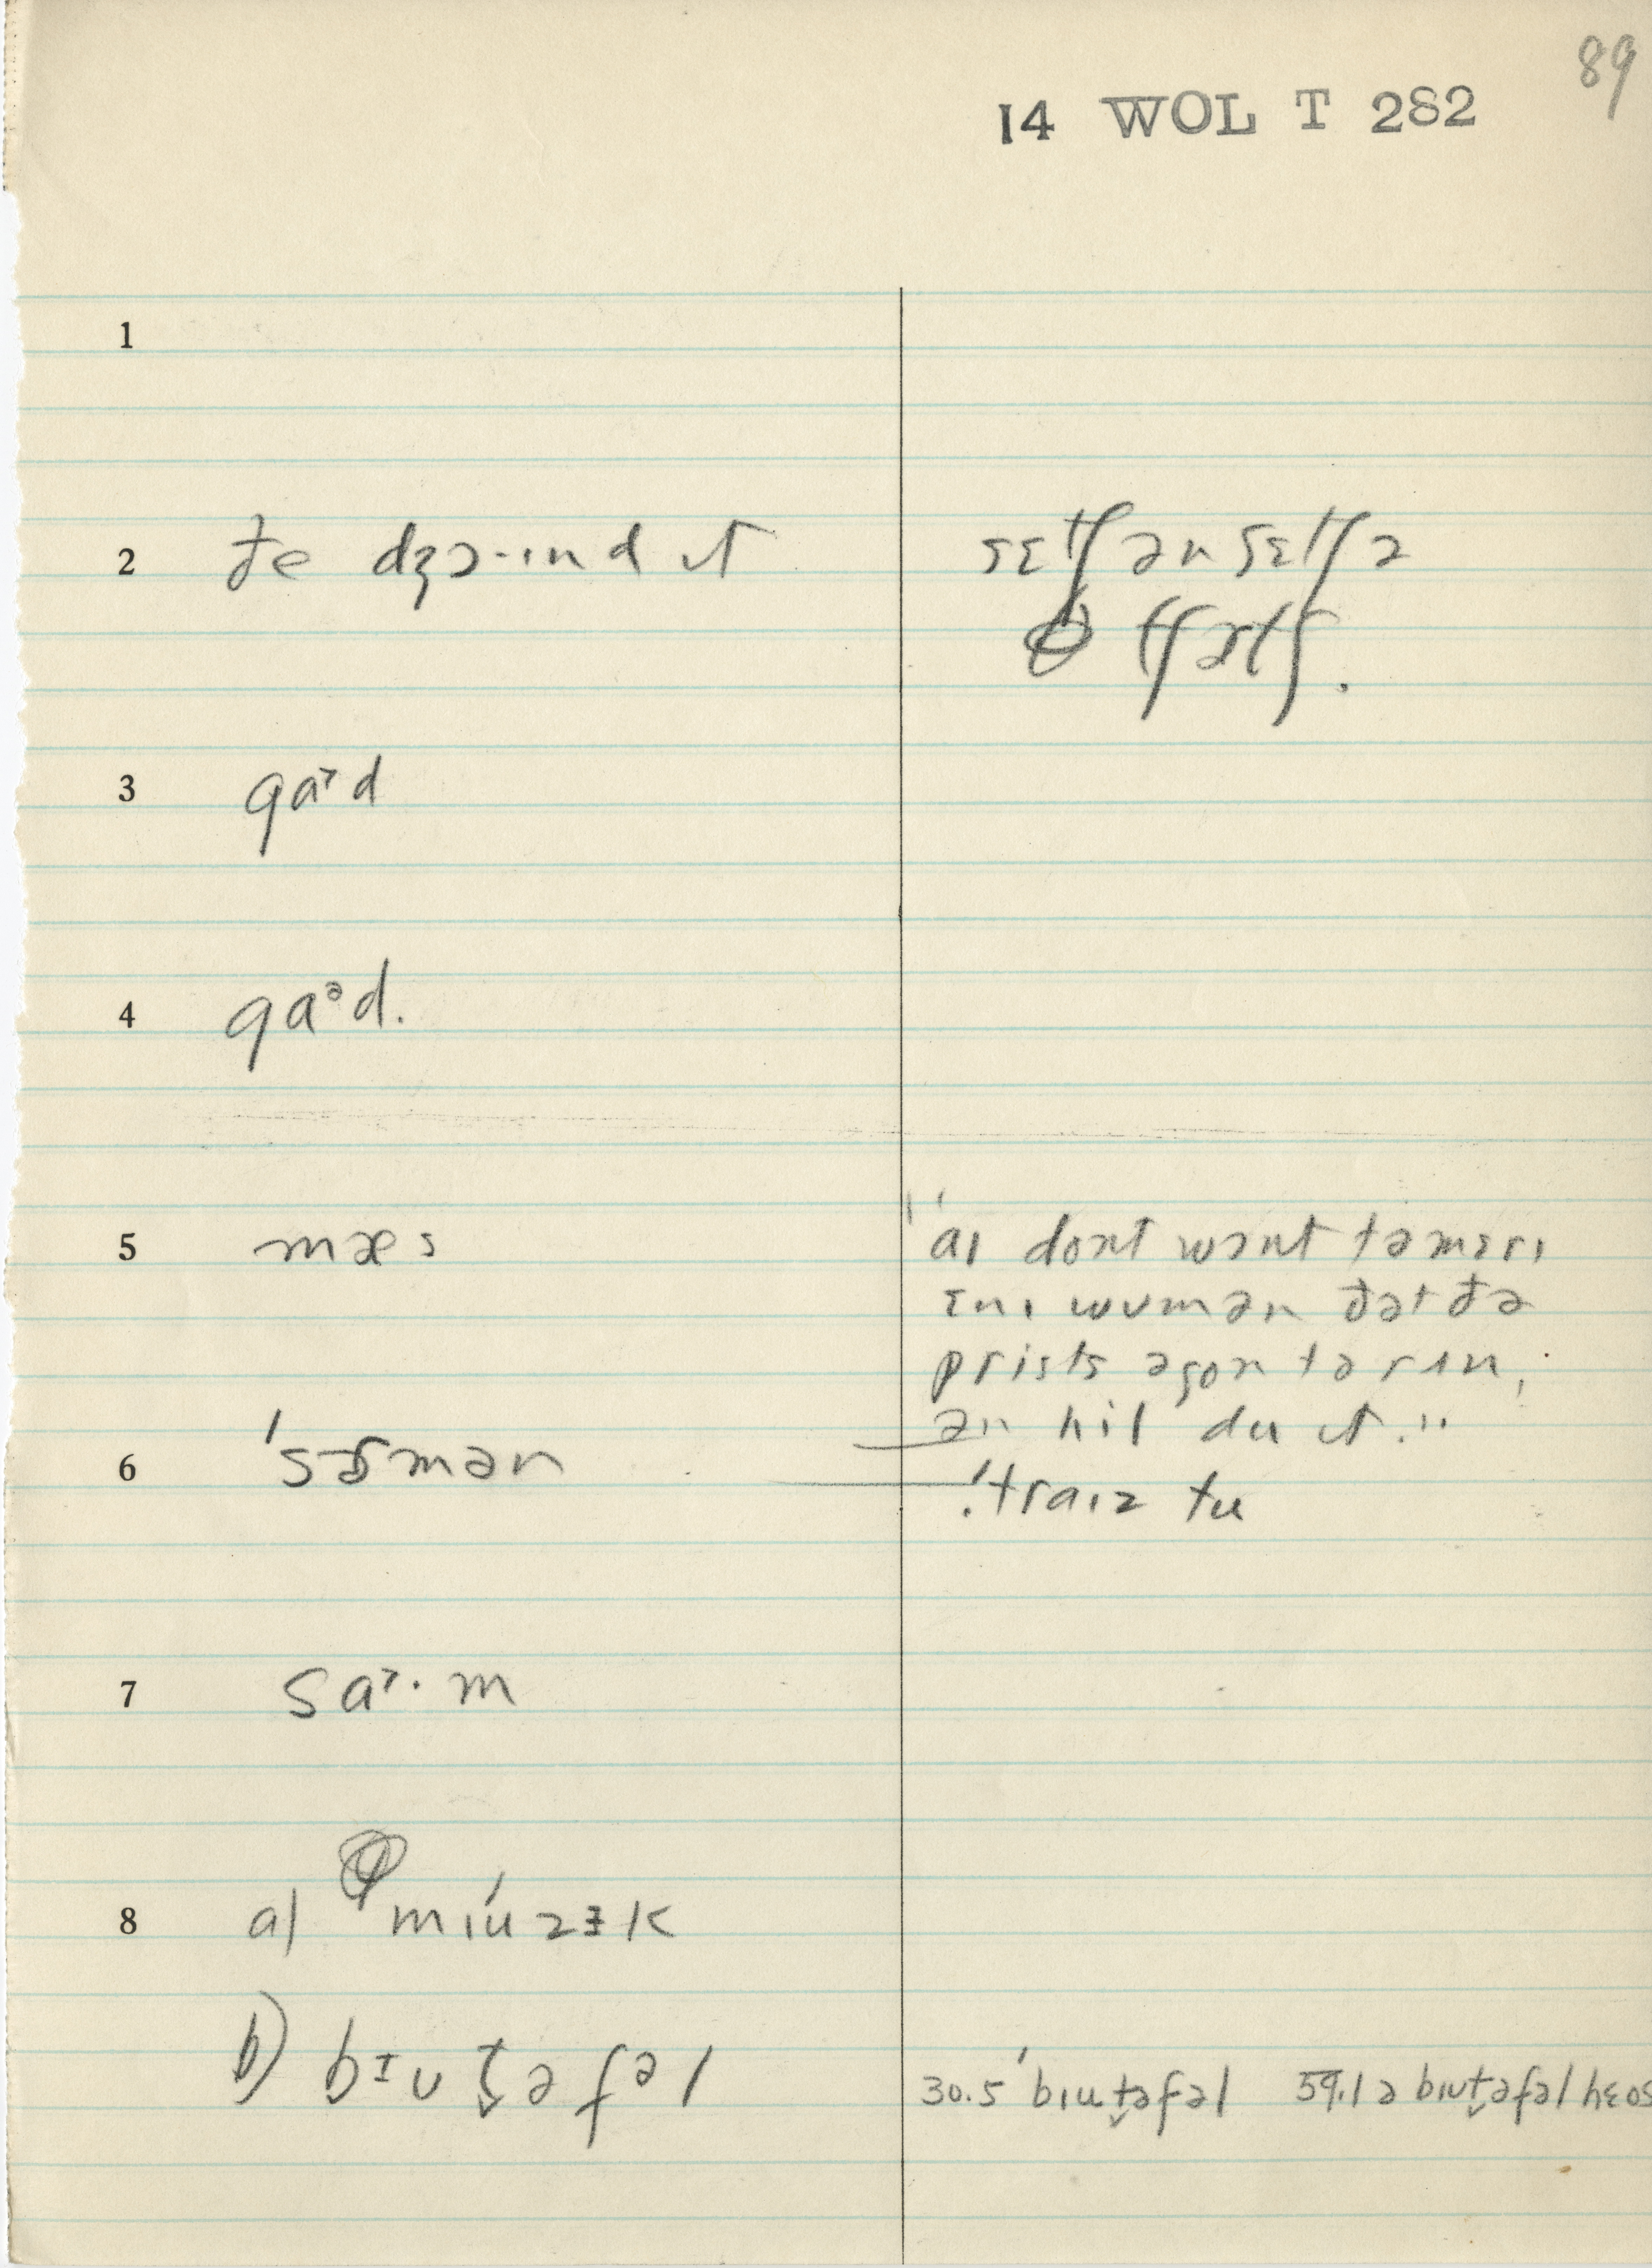 89
14 WOL T 282
1
2 ðe dʒɔ·ɪnd ɪt
sɛtʃ ən sɛtʃ ə
tʃɜtʃ.
3 gaɚd
4 gaᵊd.
5 mæs
"aɪ dont wɔnt təmɛrɪ
ɛnɪ wumən ðət ðə
prists əgon tərɪn,
ən hil du ɪt."
6 'sɝmən
'traɪz tu
7 sa˞·m
8 a) mɪúzɪk
b) bɪut̬əfəl
30.5 'bɪut̬əfəl 59.1 ə bɪut̬əfəl